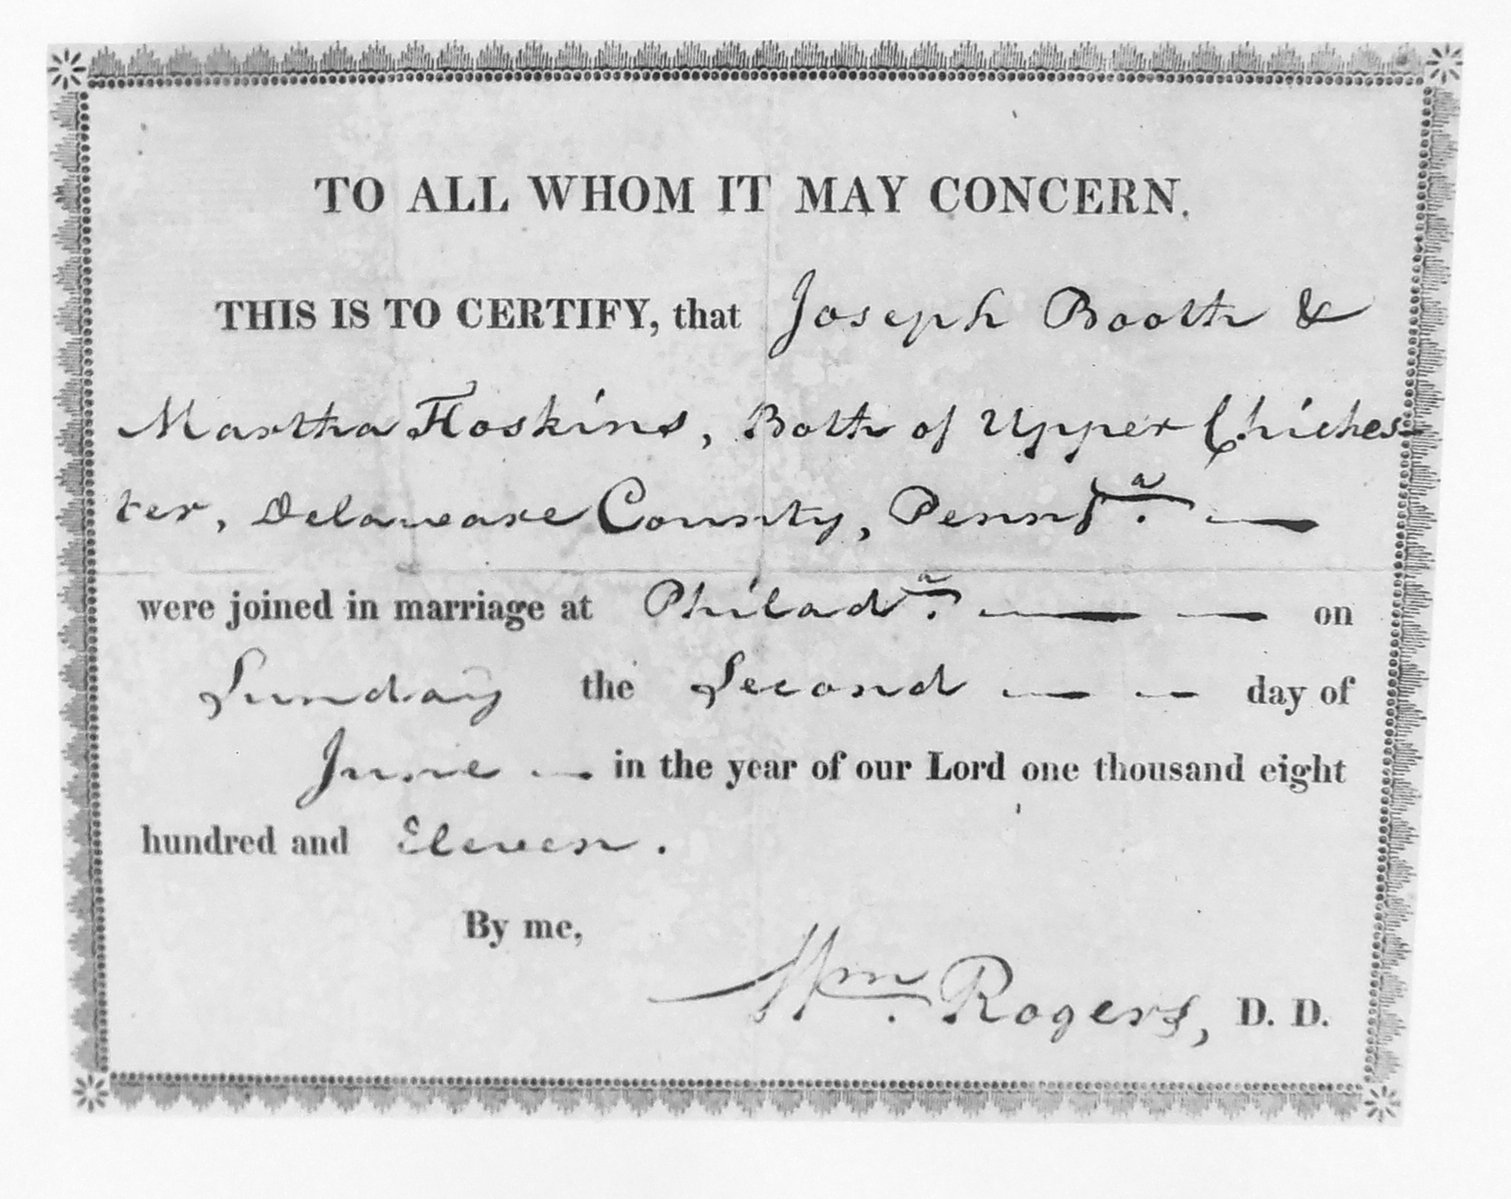 TO ALL WHOM IT MAY CONCERN.
THIS IS TO CERTIFY, that Joseph Booth &
Martha Hoskins, Both of Upper Chiches-
ter, Delaware County, Pennsᵃ. —
were joined in marriage at Philadᵃ. — — on
Sunday the Second — — day of
June — in the year of our Lord one thousand eight
hundred and Eleven.
By me,
Wm. Rogers, D. D.